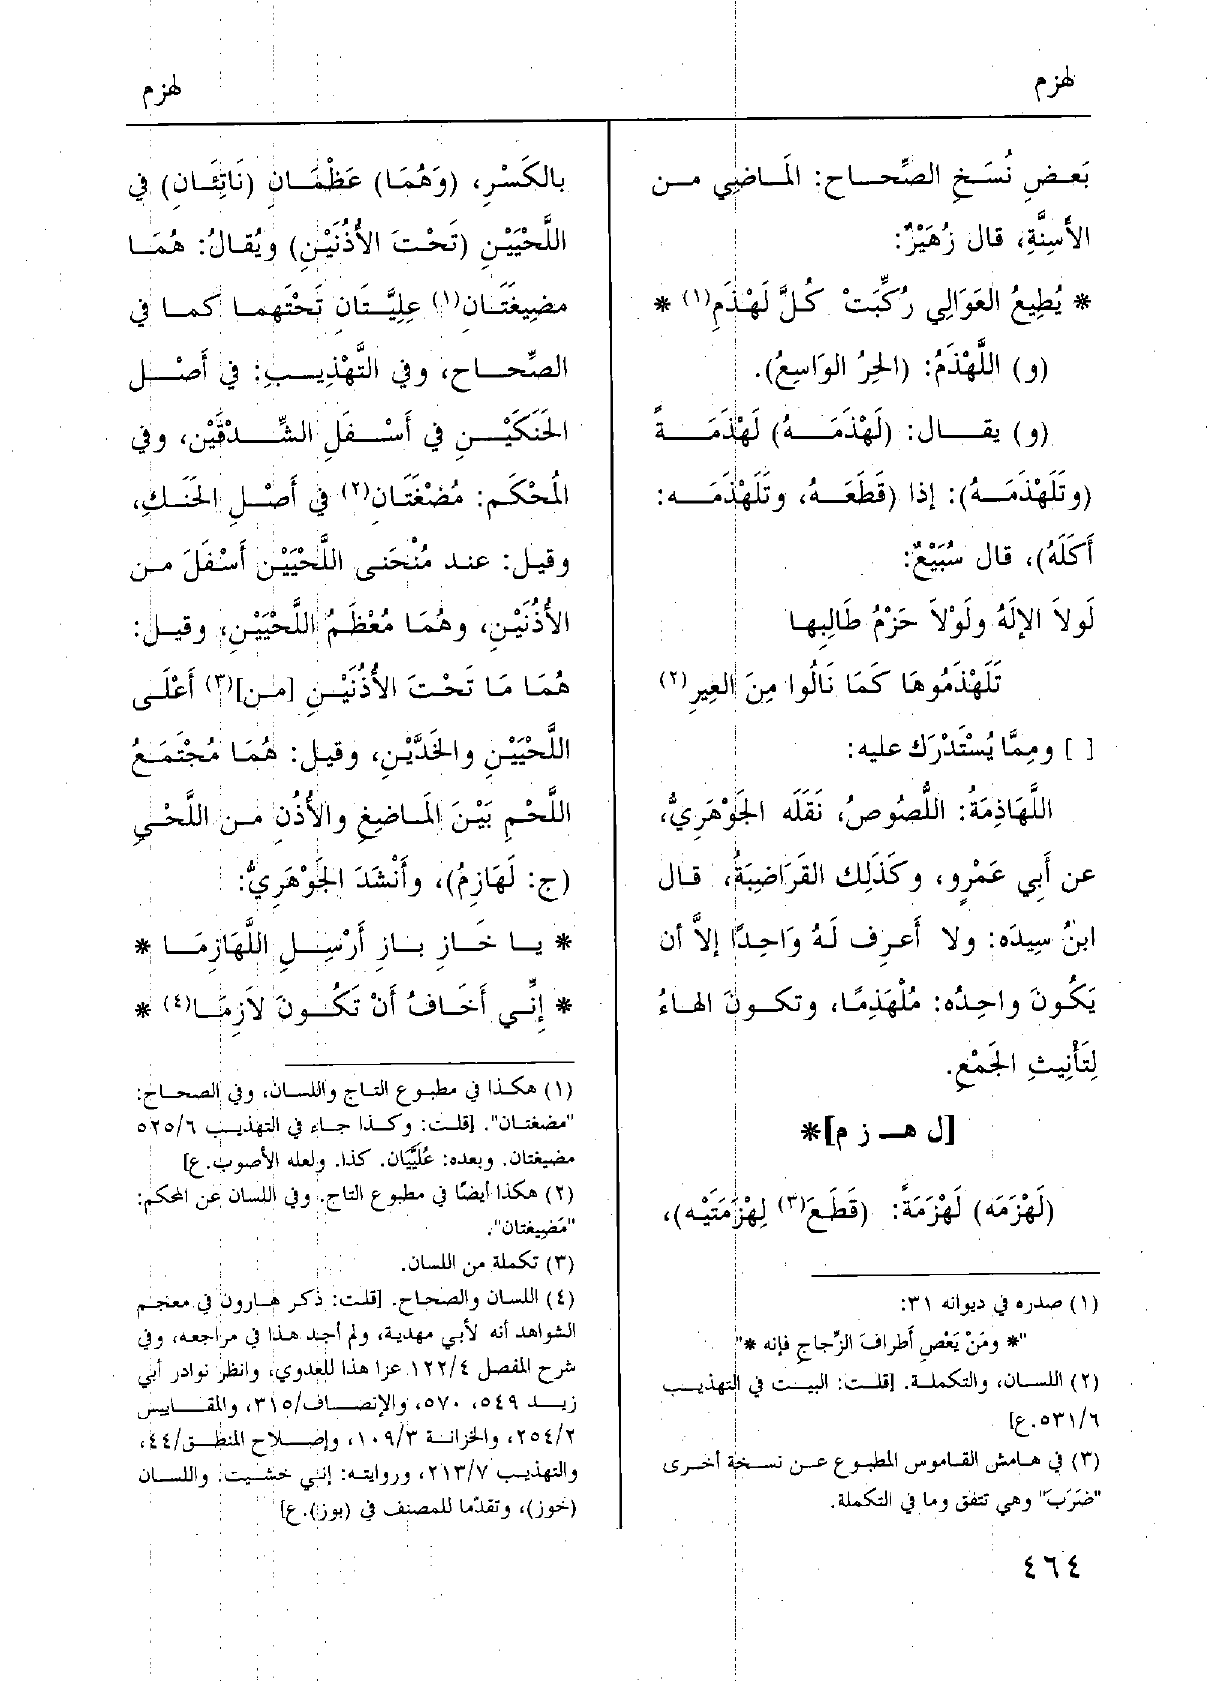 لهزم
لهزم
بَعضِ نُسَخِ الصِّحاح: المَاضِي من
الأسِنَّةِ، قال زُهَيْرٌ:
* يُطِيعُ العَوَالِي رُكِّبَتْ كُلَّ لَهْذَمِ(١) *
(و) اللَّهْذَمُ: (الحِرُ الوَاسِعُ).
(و) يقال: (لَهْذَمَهُ) لَهْذَمَةً
(وتَلَهْذَمَهُ): إذا (قَطَعَهُ، وتَلَهْذَمَه:
أَكَلَهُ)، قال سُبَيْعٌ:
لَولاَ الإلَهُ ولَوْلاَ حَزْمُ طَالِبِها
تَلَهْذَمُوهَا كَمَا نَالُوا مِنَ العِيرِ(٢)
[ ] ومِمَّا يُسْتَدْرَك عليه:
اللَّهَاذِمَةُ: اللُّصُوصُ، نَقَلَه الجَوْهَرِيُّ،
عن أَبي عَمْرٍو، وكَذَلِك القَرَاضِبَةُ، قال
ابنُ سِيدَه: ولا أَعرِف لَهُ وَاحِدًا إلاَّ أن
يَكُونَ واحِدُه: مُلَهْذِمًا، وتكونَ الهاءُ
لِتَأْنِيثِ الجَمْعِ.
[ل هـ ز م]*
(لَهْزَمَه) لَهْزَمَةً: (قَطَعَ(٣) لِهْزِمَتَيْه)،
(١) صدره في ديوانه ٣١:
"* ومَنْ يَعْصِ أطرافَ الزِّجاجِ فإنه *"
(٢) اللسان، والتكملة. [قلت: البيت في التهذيب
٥٣١/٦.ع]
(٣) في هامش القاموس المطبوع عن نسخة أخرى
"ضَرَبَ" وهي تتفق وما في التكملة.
بالكَسْرِ، (وَهُمَا) عَظْمَانِ (نَاتِئَانِ) في
اللَّحْيَيْنِ (تَحْتَ الأُذُنَيْنِ) ويُقالُ: هُمَا
مضِيغَتَانِ(١) عِلِيَّتَانِ تَحْتَهما كما في
الصِّحاح، وفي التَّهْذِيبِ: في أَصْلِ
الحَنَكَيْنِ في أَسْفَلِ الشِّدْقَيْنِ، وفي
المُحْكَم: مُضْغَتَان(٢) في أَصْلِ الحَنَكِ،
وقيل: عند مُنْحَنى اللَّحْيَيْنِ أَسْفَلَ من
الأُذُنَيْنِ، وهُمَا مُعْظَمُ اللَّحْيَيْنِ، وقيل:
هُمَا مَا تَحْتَ الأُذُنَيْنِ [من](٣) أَعْلَى
اللَّحْيَيْنِ والخَدَّيْنِ، وقيل: هُمَا مُجْتَمَعُ
اللَّحْمِ بَيْنَ المَاضِغِ والأُذُنِ من اللَّحْيِ
(ج: لَهَازِمُ)، وأَنْشَدَ الجَوْهَرِيُّ:
* يا خَازِ بازِ أَرْسِلِ اللَّهَازِمَا *
* إِنِّي أَخَافُ أَنْ تَكُونَ لاَزِمَا(٤) *
(١) هكذا في مطبوع التاج واللسان، وفي الصحاح:
"مضغتان". [قلت: وكذا جاء في التهذيب ٥٢٥/٦
مضيغتان. وبعده: عُلَيَّان. كذا. ولعله الأصوب.ع]
(٢) هكذا أيضًا في مطبوع التاج. وفي اللسان عن المحكم:
"مَضِيغتان".
(٣) تكملة من اللسان.
(٤) اللسان والصحاح. [قلت: ذكر هارون في معجم
الشواهد أنه لأبي مهدية، ولم أجد هذا في مراجعه، وفي
شرح المفصل ١٢٢/٤ عزا هذا للعدوي، وانظر نوادر أبي
زيد ٥٤٩، ٥٧٠، والإنصاف/٣١٥، والمقاييس
٢٥٤/٢، والخزانة ١٠٩/٣، وإصلاح المنطق/٤٤،
والتهذيب ٢١٣/٧، وروايته: إني خشيت. واللسان
(خوز)، وتقدّما للمصنف في (بوز).ع]
٤٦٤